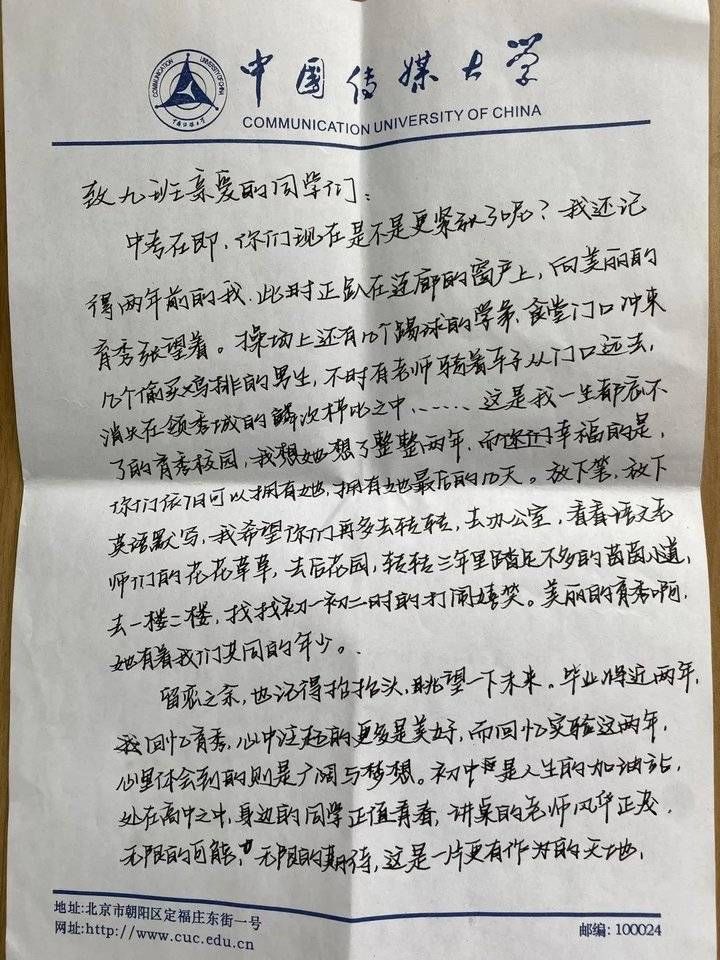 中国传媒大学
COMMUNICATION UNIVERSITY OF CHINA
COMMUNICATION UNIVERSITY OF CHINA
中国传媒大学
致九班亲爱的同学们：
中考在即，你们现在是不是更紧张了呢？我还记
得两年前的我，此时正趴在连廊的窗户上，向美丽的
育秀张望着。操场上还有几个踢球的学弟，食堂门口冲来
几个偷买鸡排的男生，不时有老师骑着车子从门口远去，
消失在领秀城的鳞次栉比之中……这是我一生都忘不
了的育秀校园，我想她想了整整两年，而你们幸福的是，
你们依旧可以拥有她，拥有她最后的几天。放下笔，放下
英语默写，我希望你们再多去转转，去办公室，看看语文老
师们的花花草草，去后花园，转转三年里踏足不多的茵茵小道，
去一楼二楼，找找初一初二时的打闹嬉笑。美丽的育秀啊，
她有着我们共同的年少。
留恋之余，也记得抬抬头，眺望一下未来。毕业将近两年，
我回忆育秀，心中泛起的更多是美好，而回忆实验这两年，
心里体会到的则是广阔与梦想。初中是人生的加油站，
处在高中之中，身边的同学正值青春，讲桌的老师风华正茂，
无限的可能，无限的期待，这是一片更有作为的天地，
地址:北京市朝阳区定福庄东街一号
网址:http://www.cuc.edu.cn
邮编: 100024